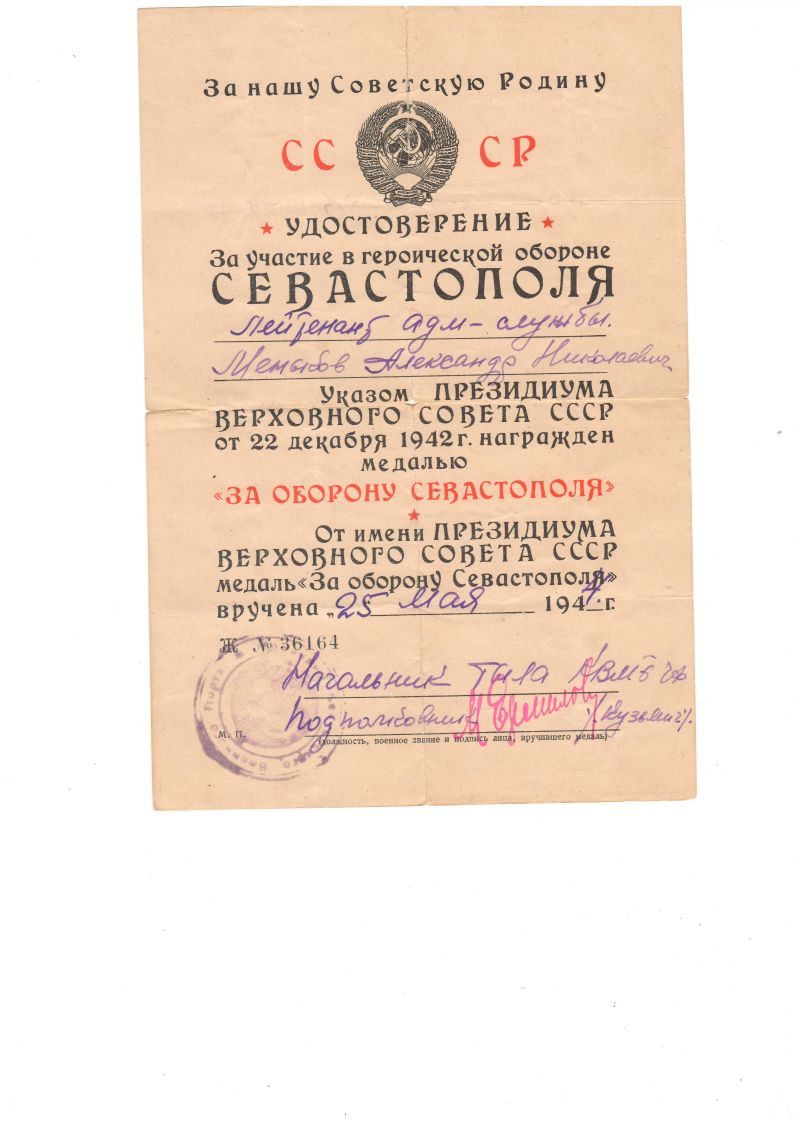 За нашу Советскую Родину
СССР
УДОСТОВЕРЕНИЕ
За участие в героической обороне
СЕВАСТОПОЛЯ
Лейтенант адм-службы.
Александр Николаевич
Указом ПРЕЗИДИУМА
ВЕРХОВНОГО СОВЕТА СССР
от 22 декабря 1942 г. награжден
медалью
«ЗА ОБОРОНУ СЕВАСТОПОЛЯ»
От имени ПРЕЗИДИУМА
ВЕРХОВНОГО СОВЕТА СССР
медаль «За оборону Севастополя»
вручена „25 Мая 1944 г.
Ж № 36164
Начальник Тыла
Подполковник
М. П.
(должность, военное звание и подпись лица, вручившего медаль)